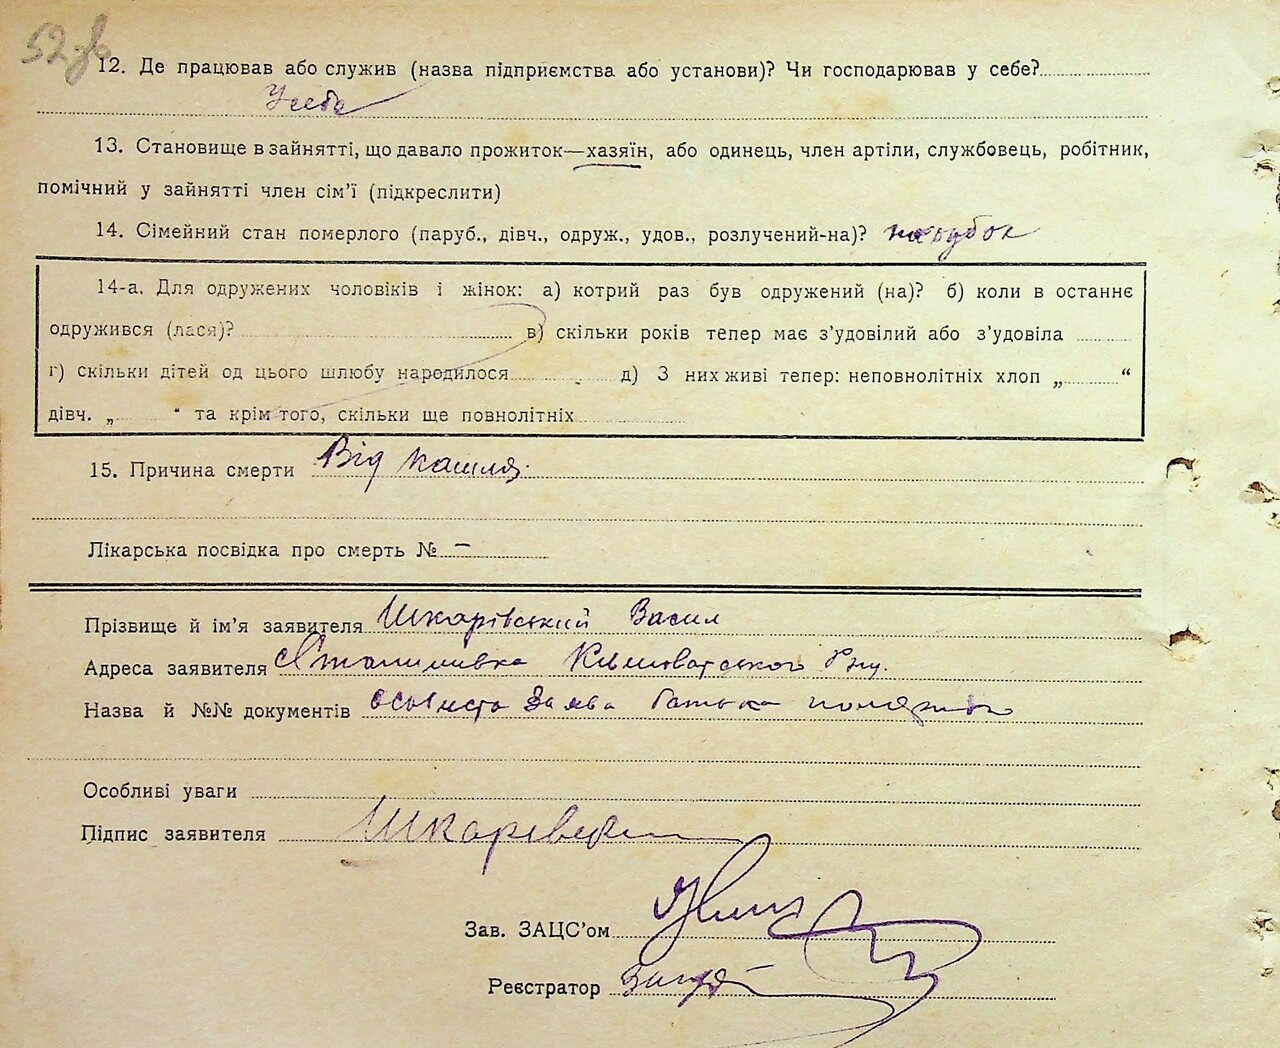 52 зв
12. Де працював або служив (назва підприємства або установи)? Чи господарював у себе?
У себе
13. Становище в зайнятті, що давало прожиток—хазяїн, або одинець, член артіли, службовець, робітник,
помічний у зайнятті член сім'ї (підкреслити)
14. Сімейний стан померлого (паруб., дівч., одруж., удов., розлучений-на)? парубок
14-а. Для одружених чоловіків і жінок: а) котрий раз був одружений (на)? б) коли в останнє
одружився (лася)? в) скільки років тепер має з'удовілий або з'удовіла
г) скільки дітей од цього шлюбу народилося д) З них живі тепер: неповнолітніх хлоп „ “
дівч. „ “ та крім того, скільки ще повнолітніх
15. Причина смерти Від кашля.
Лікарська посвідка про смерть № —
Прізвище й ім'я заявителя Шкарівський Васил
Адреса заявителя
Назва й №№ документів особиста заява батька
Особливі уваги
Підпис заявителя
Зав. ЗАЦС'ом
Реєстратор